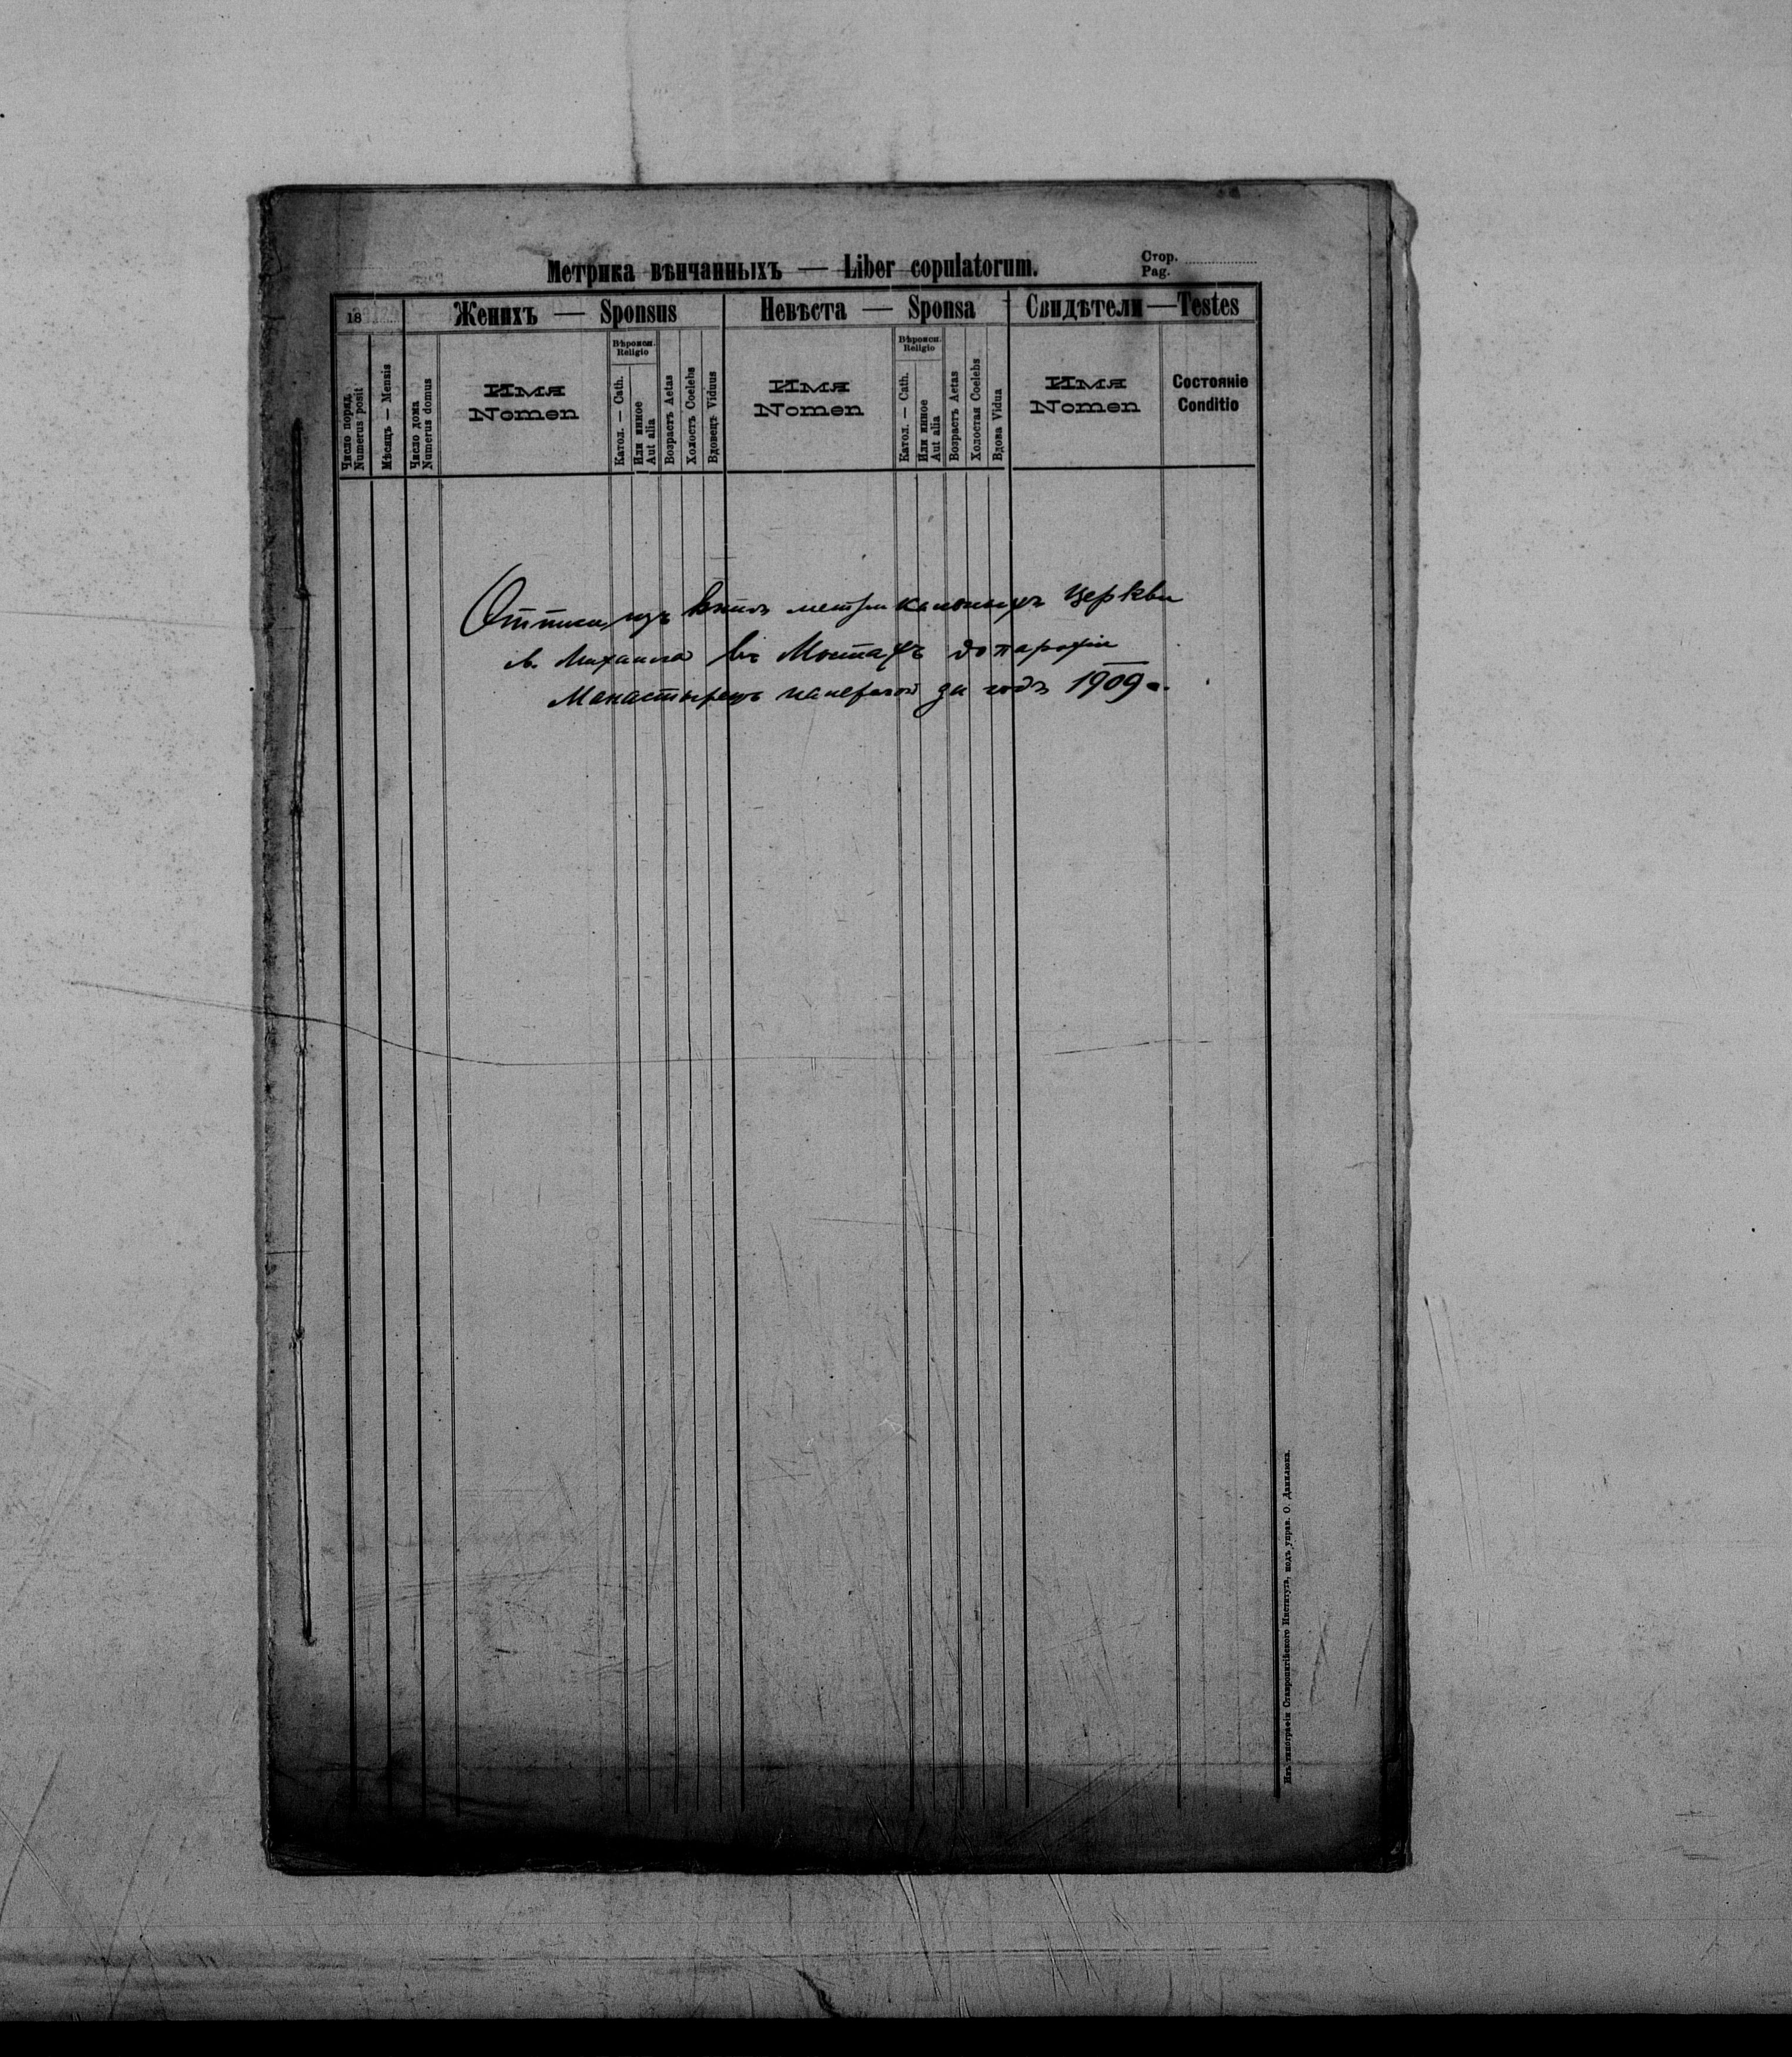 Метрика вѣнчанныхъ — Liber copulatorum.
Стор.
Pag.
18
Женихъ — Sponsus
Невѣста — Sponsa
Свидѣтели — Testes
Число поряд. Numerus posit
Мѣсяцъ — Mensis
Число дома Numerus domus
Имя
Nomen
Вѣроисп.
Religio
Катол. — Cath.
Или инное Aut alia
Возрастъ Aetas
Холостъ Coelebs
Вдовецъ Viduus
Имя
Nomen
Вѣроисп.
Religio
Катол. — Cath.
Или инное Aut alia
Возрастъ Aetas
Холостая Coelebs
Вдова Vidua
Имя
Nomen
Состояніе
Conditio
изъ книгъ метрикальныхъ церкви
Михаила въ Мостахъ до парохіи
Манастырець за годъ 1909
Изъ типографіи Ставропигійского Института, подъ управ. О. Данилюка.